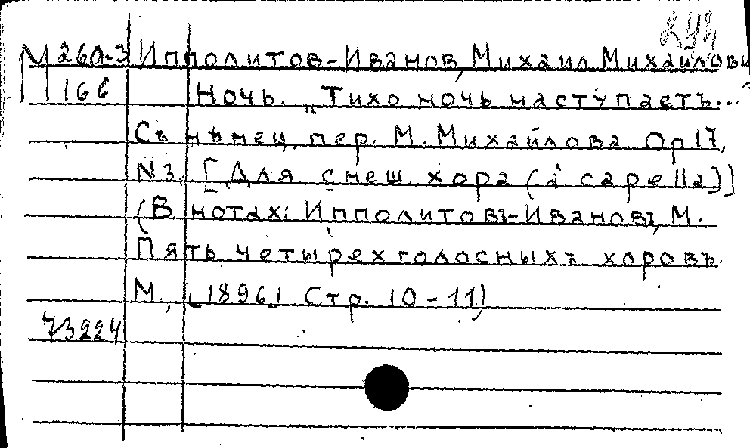 293
М 260-3 Ипполитов-Иванов, Михаил Михайлови
166 Ночь. „Тихо ночь наступаетъ..."
Съ нѣмец. пер. М. Михайлова. Ор 17,
N3. [Для смеш. хора (a capella)]
(В нотах: Ипполитовъ-Ивановъ, М.
Пять четырехголосныхъ хоровъ
М., [1896] Стр. 10-11)
73224